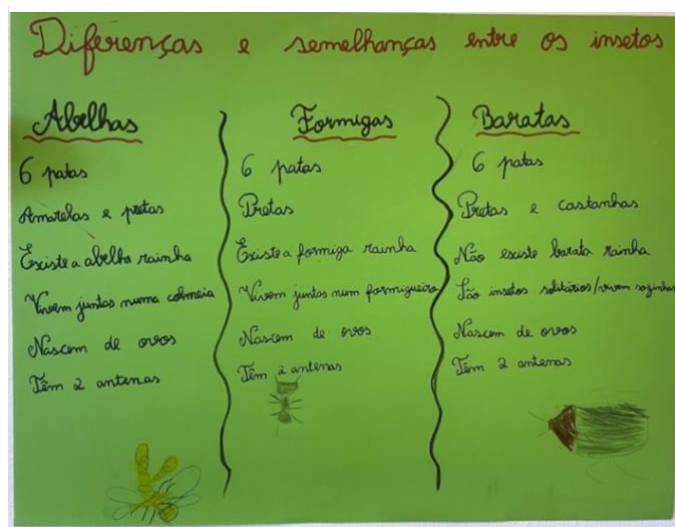 Diferenças e semelhanças entre os insetos
Abelhas
6 patas
Amarelas e pretas
Existe a abelha rainha
Vivem juntas numa colmeia
Nascem de ovos
Têm 2 antenas
Formigas
6 patas
Pretas
Existe a formiga rainha
Vivem juntas num formigueiro
Nascem de ovos
Têm 2 antenas
Baratas
6 patas
Pretas e castanhas
Não existe barata rainha
São insetos solitários/vivem sozinhas
Nascem de ovos
Têm 2 antenas